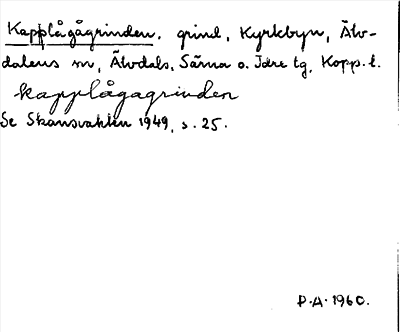 Kapplågågrinden. grind, Kyrkbyn, Älv-
dalens sn, Älvdals, Särna o. Idre tg, Kopp. l.
kapplågagrinden
Se Skansvakten 1949, s. 25.
P.A. 1960.